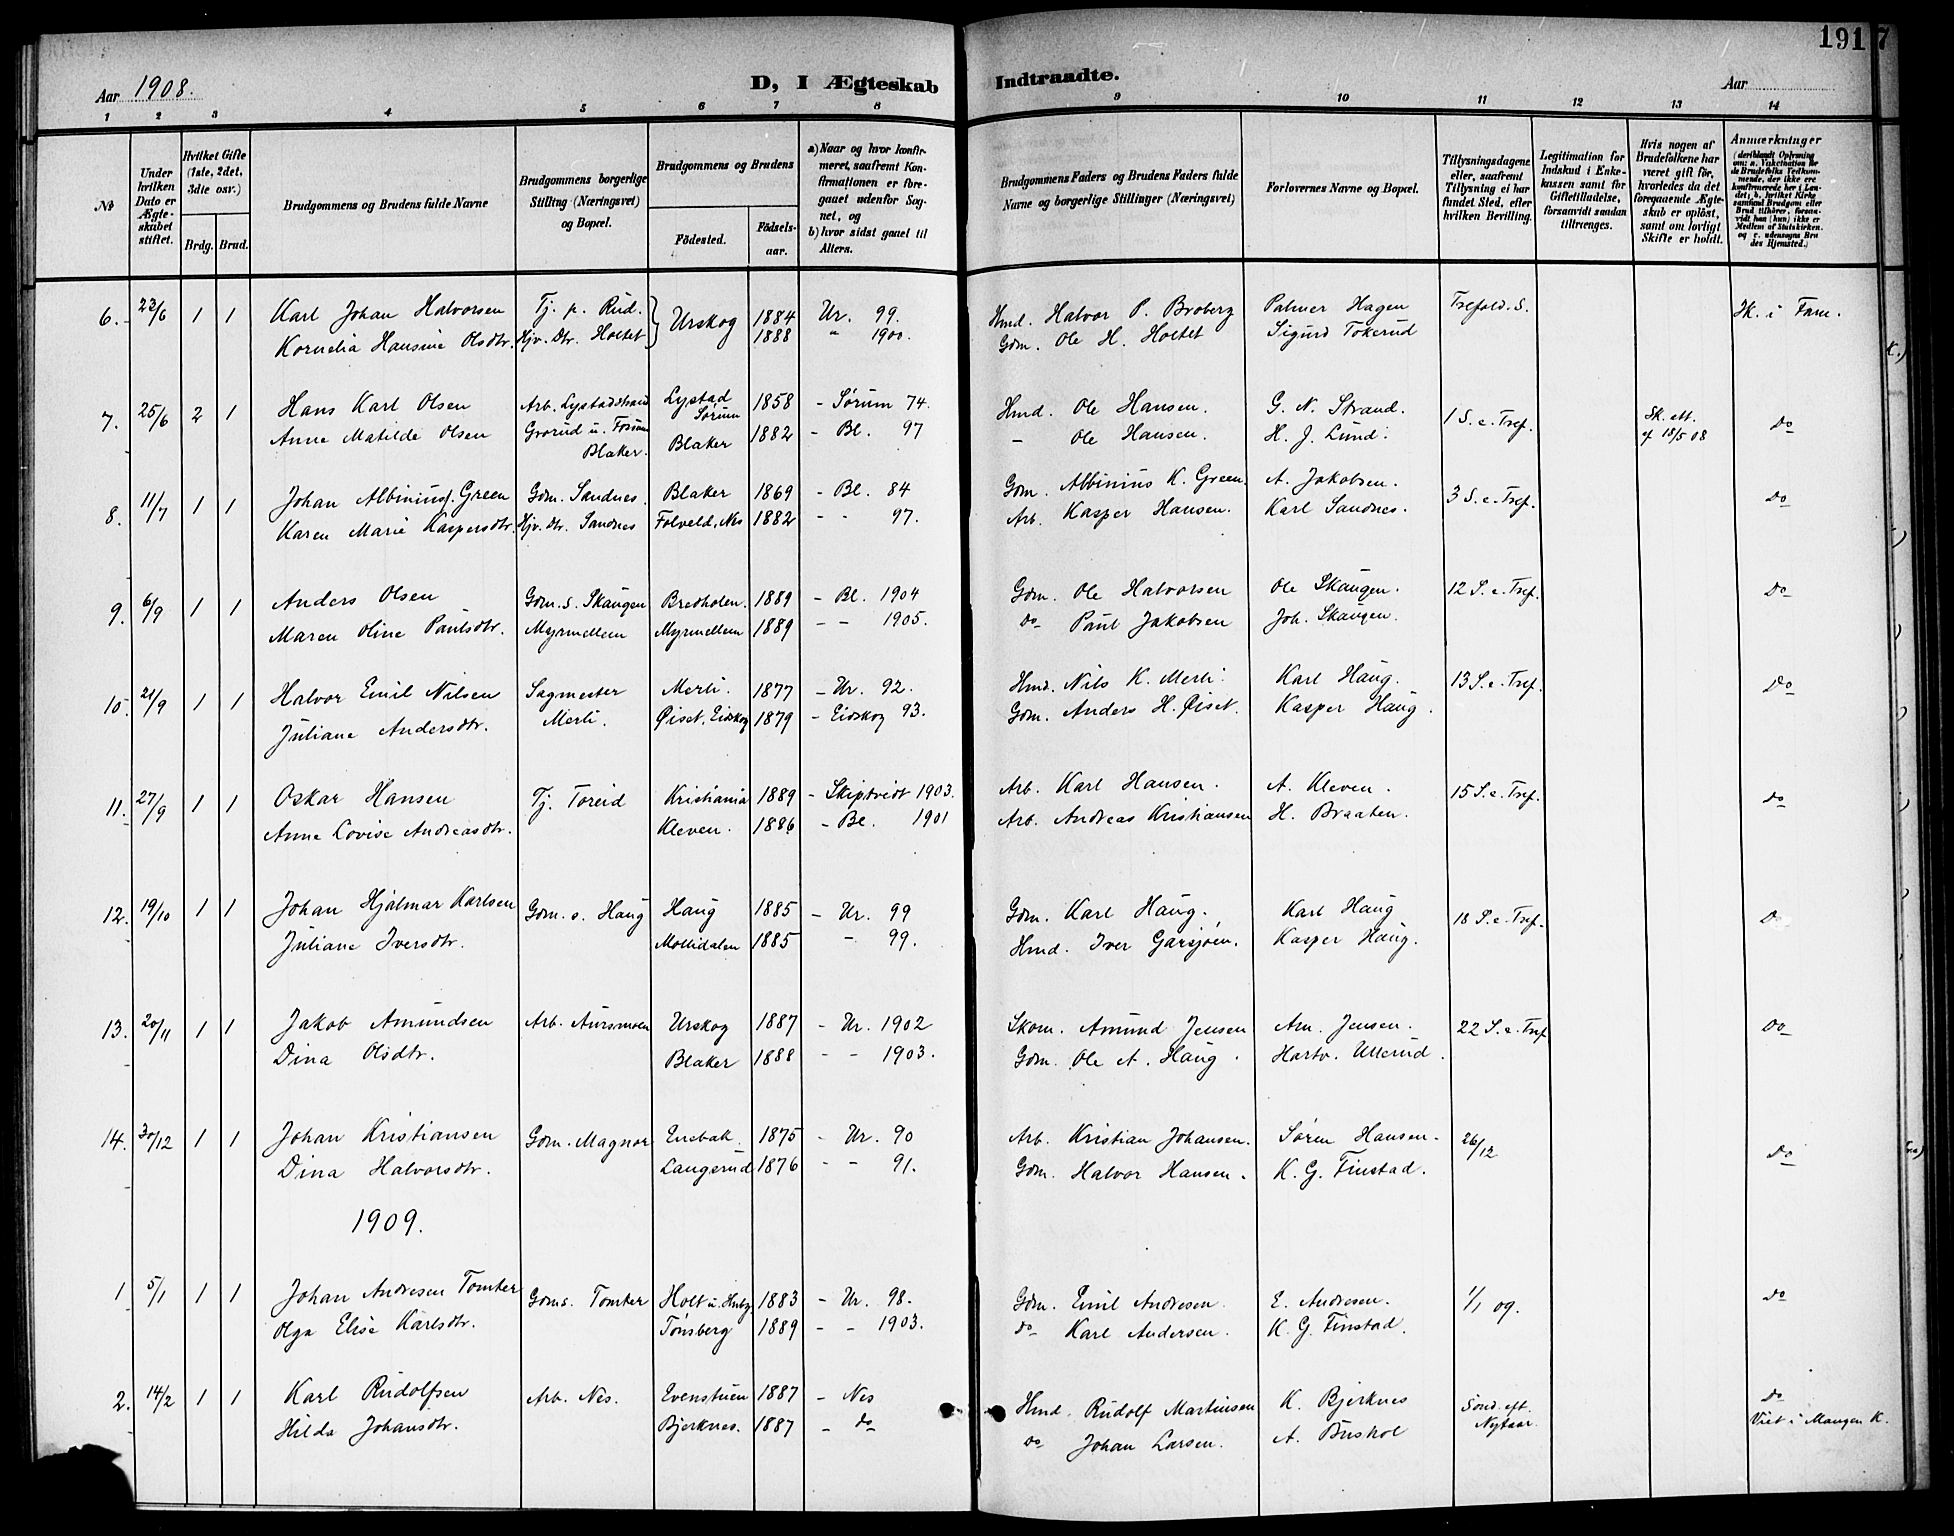 191 7
Aar 1908.
D, I Ægteskab Indtraadte.
Aar
1 2 3 4 5 6 7 8 9 10 11 12 13 14
No
Under hvilken Dato er Ægteskabet stiftet.
Hvilket Gifte (1ste, 2det, 3die osv.)
Brdg. Brud.
Brudgommens og Brudens fulde Navne
Brudgommens borgerlige Stilling (Næringsvei) og Bopæl.
Brudgommens og Brudens
Födested. Födselsaar.
a) Naar og hvor konfirmeret, saafremt Konfirmationen er foregaaet udenfor Sognet, og
b) hvor sidst gaaet til Alters.
Brudgommens Faders og Brudens Faders fulde Navne og borgerlige Stillinger (Næringsvei)
Forlovernes Navne og Bopæl.
Tillysningsdagene eller, saafremt Tillysning ei har fundet Sted, efter hvilken Bevilling.
Legitimation for Indskud i Enkekassen samt for Giftetilladelse, forsaavidt saadan tiltrænges.
Hvis nogen af Brudefolkene har været gift för, hvorledes da det foregaaende Ægteskab er oplöst, samt om lovligt Skifte er holdt.
Anmærkninger (deriblandt Oplysning om: a. Vakcination for de Brudefolks Vedkommende, der ikke ere konfirmerede her i Landet; b. hvilket Kirkesamfund Brudgom eller Brud tilhörer, forsaavidt han (hun) ikke er Medlem af Statskirken. og c. udensogns Brudes Hjemsted.)
6. 23/6 1 1 Karl Johan Halvorsen Tj. p. Rud. Urskog 1884 Ur. 99. Hmd. Halvor P. Broberg Palmer Hagen Trefold. S. Sk. i Fam.
Kornelia Hansine Olsdtr. Hjv. Dtr. Holtet 1888 " 1900. Gdm. Ole H. Holtet Sigurd Tokerud
7. 25/6 2 1 Hans Karl Olsen Arb. Lystadstrand Lystad Sørum 1858 - Sørum 74. Hmd. Ole Hansen. G. N. Strand. 1 S. e. Tref. Sk. att. af 18/5 08 Do
Anne Matilde Olsen Grorud u. Fossum Blaker. Blaker 1882 - Bl. 97 - Ole Hansen. H. J. Lund.
8. 11/7 1 1 Johan Albinius. Green Gdm. Sandnes. Blaker 1869 - Bl. 84 Gdm. Albinius K. Green. A. Jakobsen. 3 S. e. Tref. Do
Karen Marie Kaspersdtr. Hjv. dtr. Sandnes Folveld, Nes 1882 - - 97. Arb. Kasper Hansen. Karl Sandnes.
9. 6/9 1 1 Anders Olsen Gdm. s. Skaugen Bredholen. 1889 - Bl. 1904 Gdm. Ole Halvorsen Ole Skaugen. 12 S. e. Tref. Do
Maren Oline Paulsdtr. Myrmellem Myrmellem 1889 - - 1905. Do Paul Jakobsen Joh. Skaugen.
10. 21/9 1 1 Halvor Emil Nilsen Sagmester Merli. 1877 - Ur. 92. Hmd. Nils K. Merli. Karl Haug. 13 S. e. Tref. Do
Juliane Andersdtr. Merli. Øiset, Eidskog 1879 - Eidskog 93. Gdm. Anders H. Øiset. Kasper Haug.
11. 27/9 1 1 Oskar Hansen Tj. Toreid Kristiania 1889 - Skiptvedt 1903. Arb. Karl Hansen. A. Kleven. 15 S. e. Tref. Do
Anne Lovise Andreasdtr. Kleven. 1886 - Bl. 1901 Arb. Andreas Kristiansen H. Braaten.
12. 19/10 1 1 Johan Hjalmar Karlsen Gdm. s. Haug Haug 1885 - Ur. 99 Gdm. Karl Haug. Karl Haug 18 S. e. Tref. Do
Juliane Iversdtr. Mollidalen 1885 - 99. Hmd. Iver Garsjøen. Kasper Haug.
13. 20/11 1 1 Jakob Amundsen Arb. Aursmoen Urskog 1887 - Ur. 1902 Skom. Amund Jensen Am. Jensen. 22 S. e. Tref Do
Dina Olsdtr. Blaker 1888 - - 1903. Gdm. Ole A. Haug. Hartv. Ullerud.
14. 30/12 1 1 Johan Kristiansen Gdm. Magnor Enebak 1875 - Ur. 90 Arb. Kristian Johansen. Søren Hansen. 26/12 Do
Dina Halvorsdtr. Langerud 1876 - - 91. Gdm. Halvor Hansen. K. G. Finstad.
1909.
1 5/1 1 1 Johan Andresen Tomter Gdms. Tomter Holt u. 1883 - Ur. 98. Gdm. Emil Andresen. E. Andresen. 1/1 09. Do
Olga Elise Karlsdtr. Tønsberg 1889 - - 1903. Do Karl Andersen. K. G. Finstad.
2. 14/2 1 1 Karl Rudolfsen Arb. Nes. Evenstuen 1887 - Nes Hmd. Rudolf Martinsen K. Bjerknes Sønd. eft. Nytaar. Do
Hilda Johansdtr. Bjerknes. 1887 - do Do Johan Larsen. A. Bushol Viet i Mangen K.